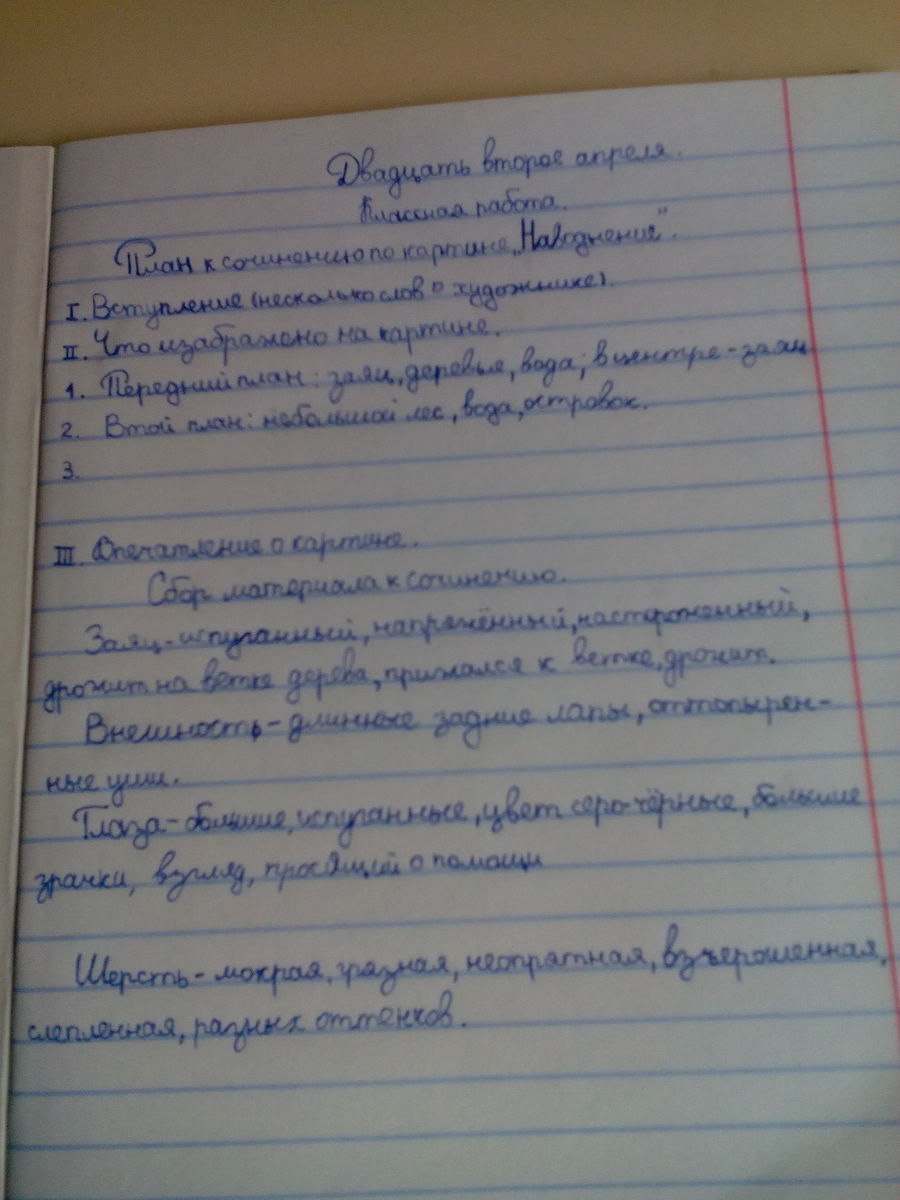 Двадцать второе апреля.
Классная работа.
План к сочинению по картине „Наводнения".
I. Вступление (несколько слов о художнике).
II. Что изабражено на картине.
1. Передний план: заяц, деревья, вода; в центре - заяц
2. Втой план: небольшой лес, вода, островок.
3.
III. Впечатление о картине.
Сбор материала к сочинению.
Заяц - испуганный, напряжённый, настороженный,
дрожит на ветке дерева, прижался к ветке, дрожит.
Внешность - длинные задние лапы, оттопырен-
ные уши.
Глаза - большие, испуганные, цвет серо-чёрные, большие
зрачки, взгляд, просящий о помощи
Шерсть - мокрая, грязная, неопрятная, взъерошенная,
слепленная, разных оттенков.